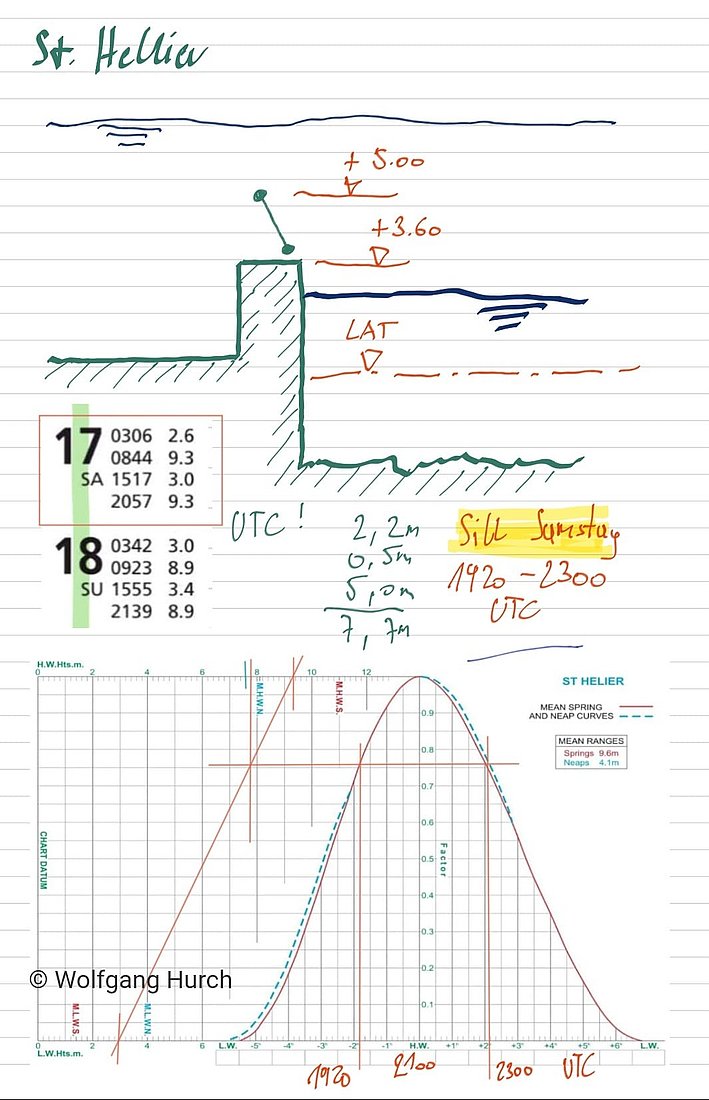 St. Hellier
+ 5.00
+3.60
LAT
17 0306 2.6
0844 9.3
SA 1517 3.0
2057 9.3
18 0342 3.0
0923 8.9
SU 1555 3.4
2139 8.9
UTC !
2,2m
0,5m
5,0m
7,7m
Sill Samstag
1920 - 2300
UTC
H.W.Hts.m.
0 2 4 6 8 10 12
M.H.W.N.
M.H.W.S.
ST HELIER
MEAN SPRING
AND NEAP CURVES
MEAN RANGES
Springs 9.6m
Neaps 4.1m
0.9
0.8
0.7
0.6
0.5
0.4
0.3
0.2
0.1
Factor
CHART DATUM
© Wolfgang Hurch
M.L.W.S.
M.L.W.N.
0 2 4 6 L.W. -5' -4' -3' -2' -1' H.W. +1' +2' +3' +4' +5' +6' L.W.
L.W.Hts.m.
1920 2100 2300 UTC